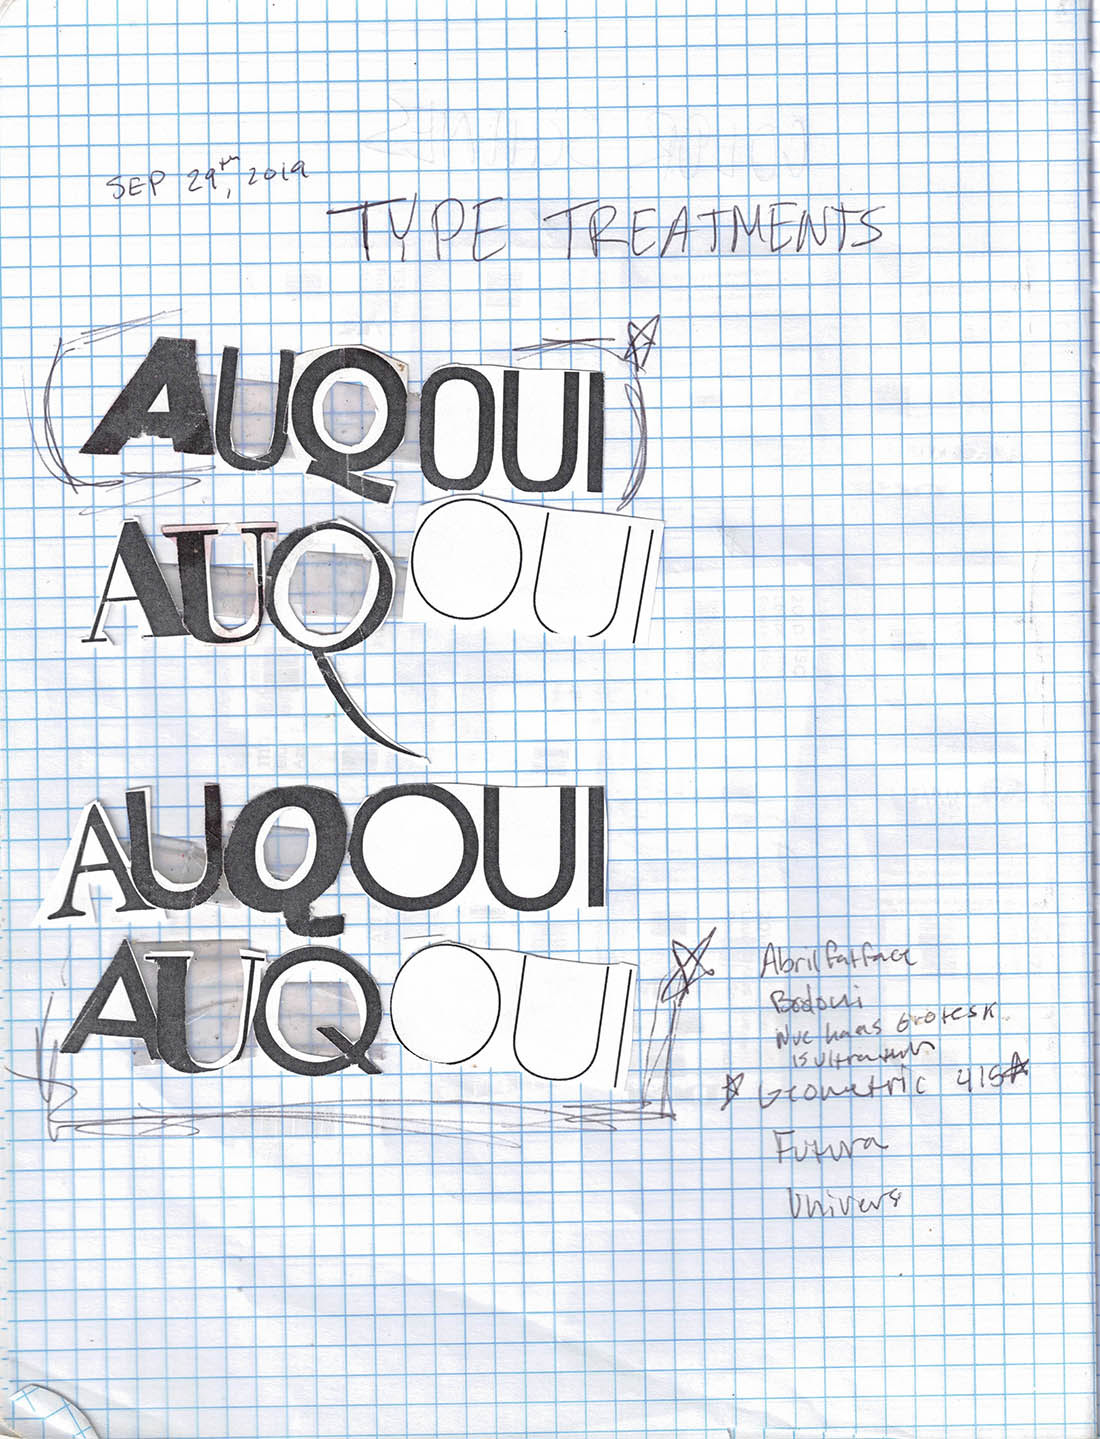 SEP 29th, 2019
TYPE TREATMENTS
AUQOUI
AUQOUI
AUQOUI
AUQOUI
Abrilfatface
Bodoni
Nue haas Grotesk
Geometric 415
Futura
Univers